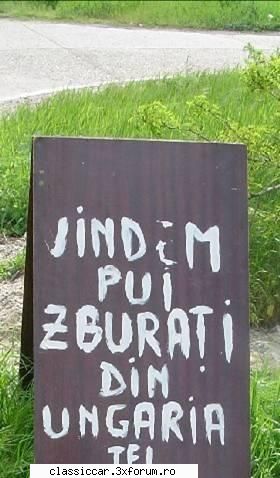 VINDEM
PUI
ZBURAȚI
DIN
UNGARIA
TEL
classiccar.3xforum.ro